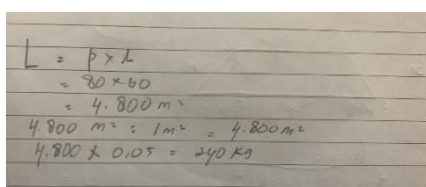 L = p x l
= 80 x 60
= 4.800 m²
4.800 m² : 1m² = 4.800 m²
4.800 x 0,05 = 240 kg